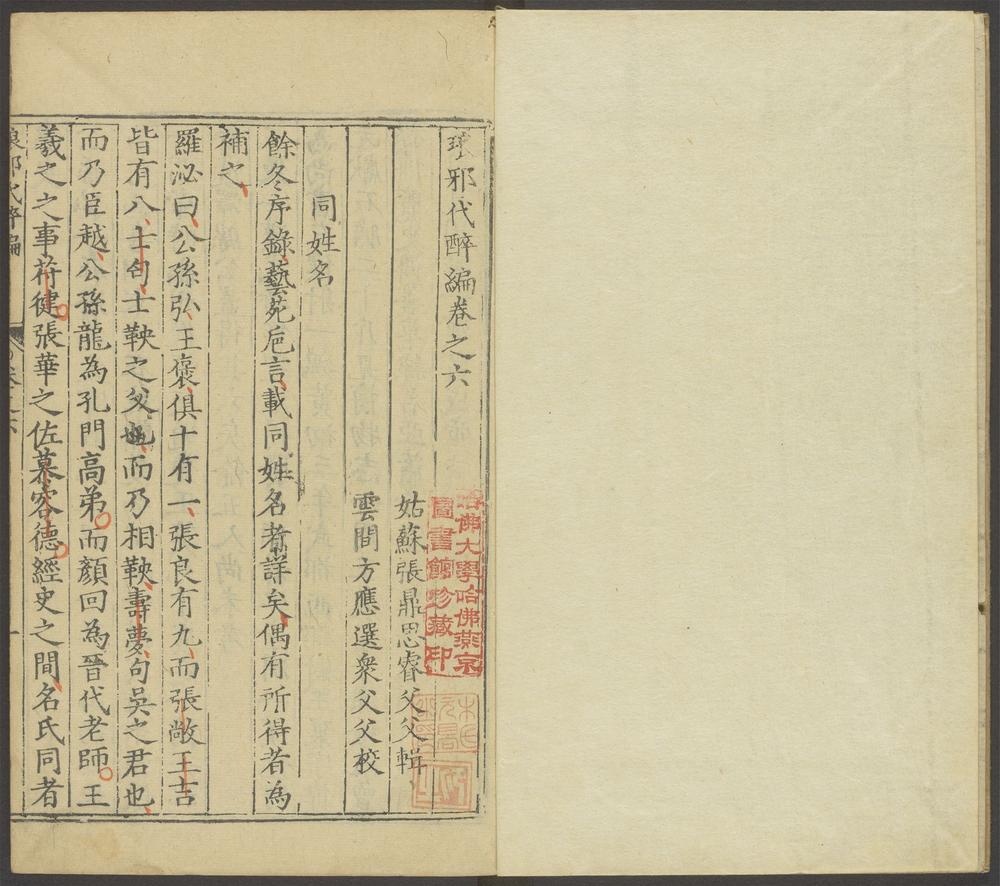 琅邪代醉編卷之六
姑蘇張鼎思睿父父輯
雲間方應選衆父父校
同姓名
餘冬序錄藝苑巵言載同姓名者詳矣偶有所得者為
補之
羅泌曰公孫弘王褒俱十有一張良有九而張敞王吉
皆有八士匄士鞅之父也而乃相鞅壽夢句吳之君也
而乃臣越公孫龍為孔門高弟而顏回為晉代老師王
羲之之事苻健張華之佐慕容德經史之間名氏同者
琅邪代醉編
卷之六
一
哈佛大學哈佛燕京
圖書館珍藏印